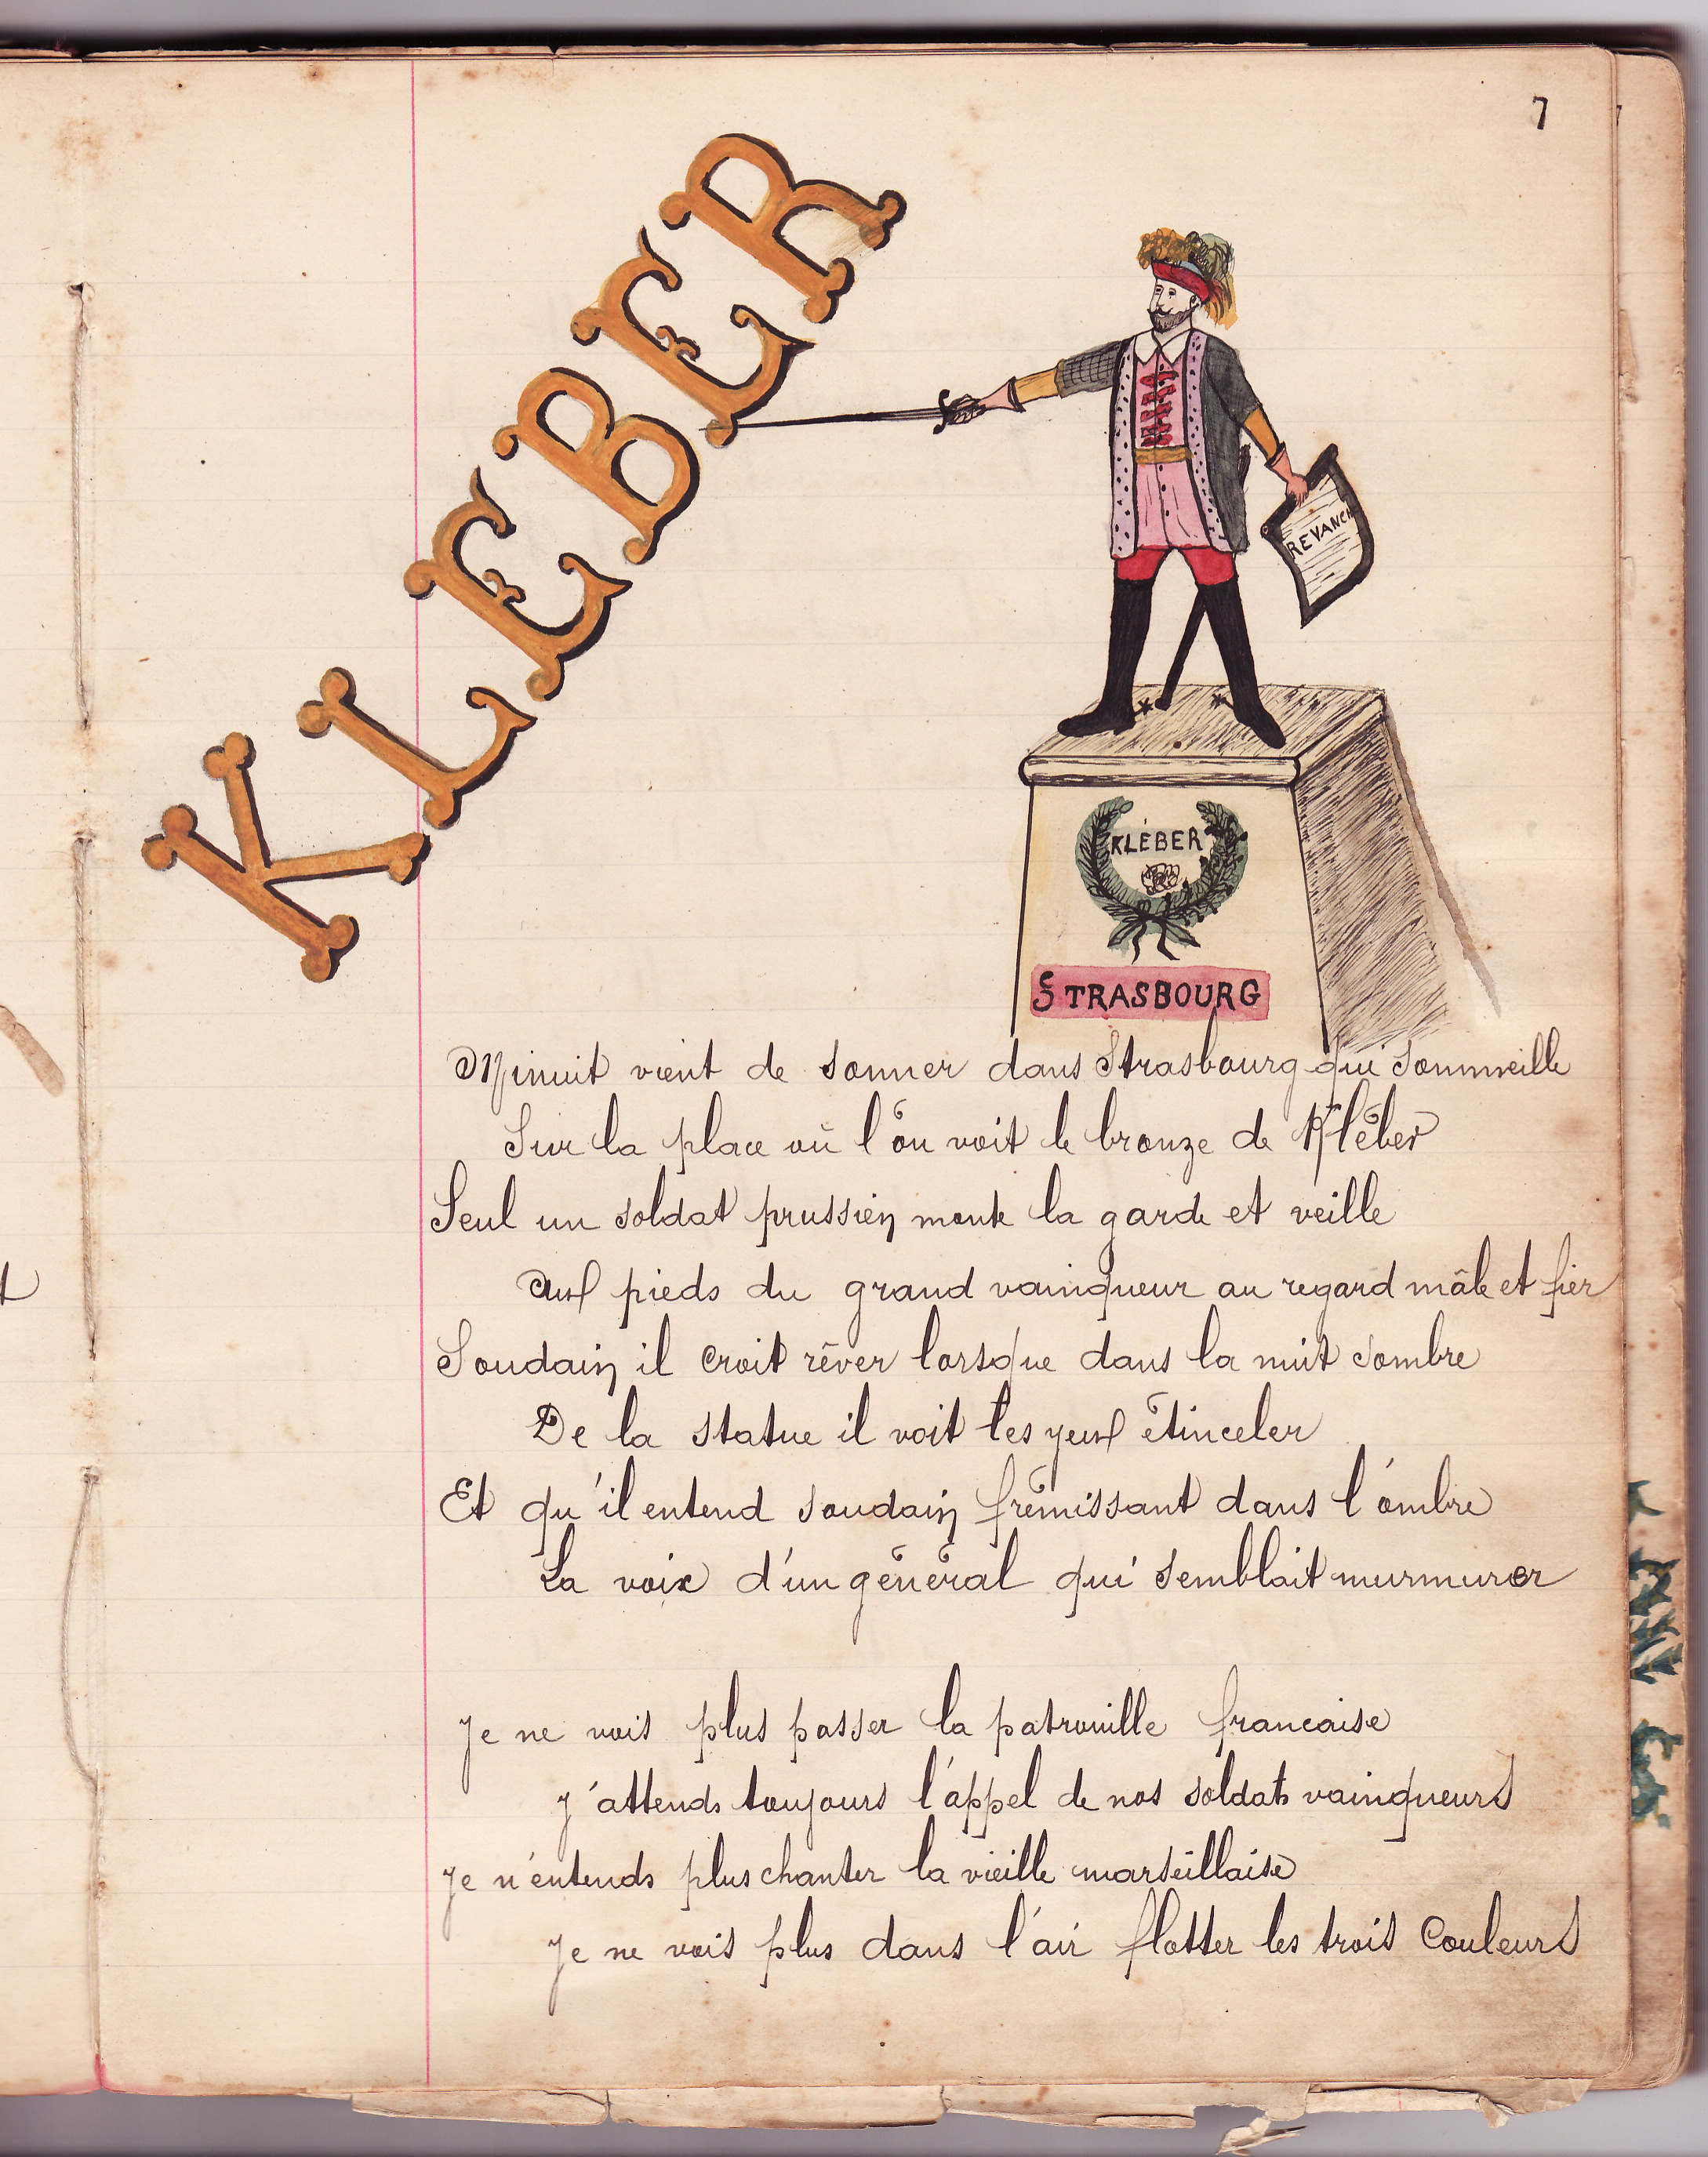 7
KLEBER
REVANCH
KLÉBER
STRASBOURG
Minuit vient de sonner dans Strasbourg qui sommeille
Sur la place où l'on voit le bronze de Kléber
Seul un soldat prussien monte la garde et veille
Aux pieds du grand vainqueur au regard mâle et fier
Soudain il croit rêver lorsque dans la nuit sombre
De la statue il voit les yeux étinceler
Et qu'il entend soudain frémissant dans l'ombre
La voix d'un général qui semblait murmurer
Je ne vois plus passer la patrouille francaise
J'attends toujours l'appel de nos soldats vainqueurs
Je n'entends plus chanter la vieille marseillaise
Je ne vois plus dans l'air flotter les trois Couleurs